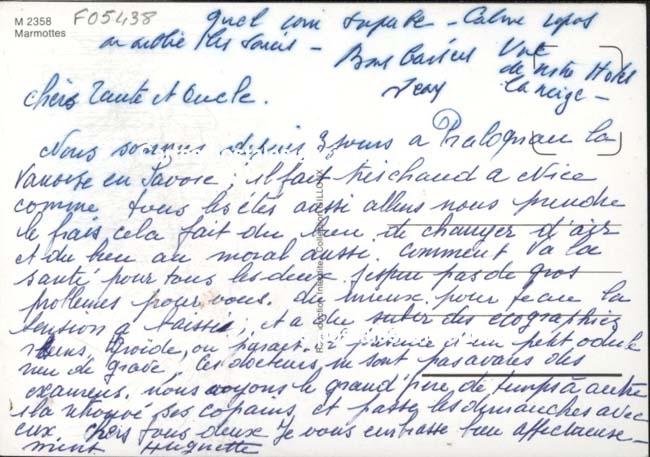 M 2358
Marmottes
F05438
quel coin superbe - Calme repos
on oublie les soucis -
Bons Baisers
Jean
Vue
de notre Hotel
la neige -
chers Tante et Oncle.
Nous sommes depuis 3 jours a Pralognan la
Vanoise en Savoie; il fait très chaud a Nice
comme tous les étés aussi allons nous prendre
le frais cela fait du bien de changer d'air
et du bien au moral aussi. Comment va la
santé pour tous les deux j'espère pas de gros
problèmes pour vous. du mieux pour Jean la
tension a baissée; et a du subir des écographies
reins, tyroide, on parait présence d'un petit
rien de grave, les docteurs ne sont pas avares des
examens. nous voyons le grand père de temps à autre
il a retrouvé ses copains et passe les dimanches avec
eux chers tous deux je vous embrasse bien affectueuse-
ment Huguette
Reproduction Interdite